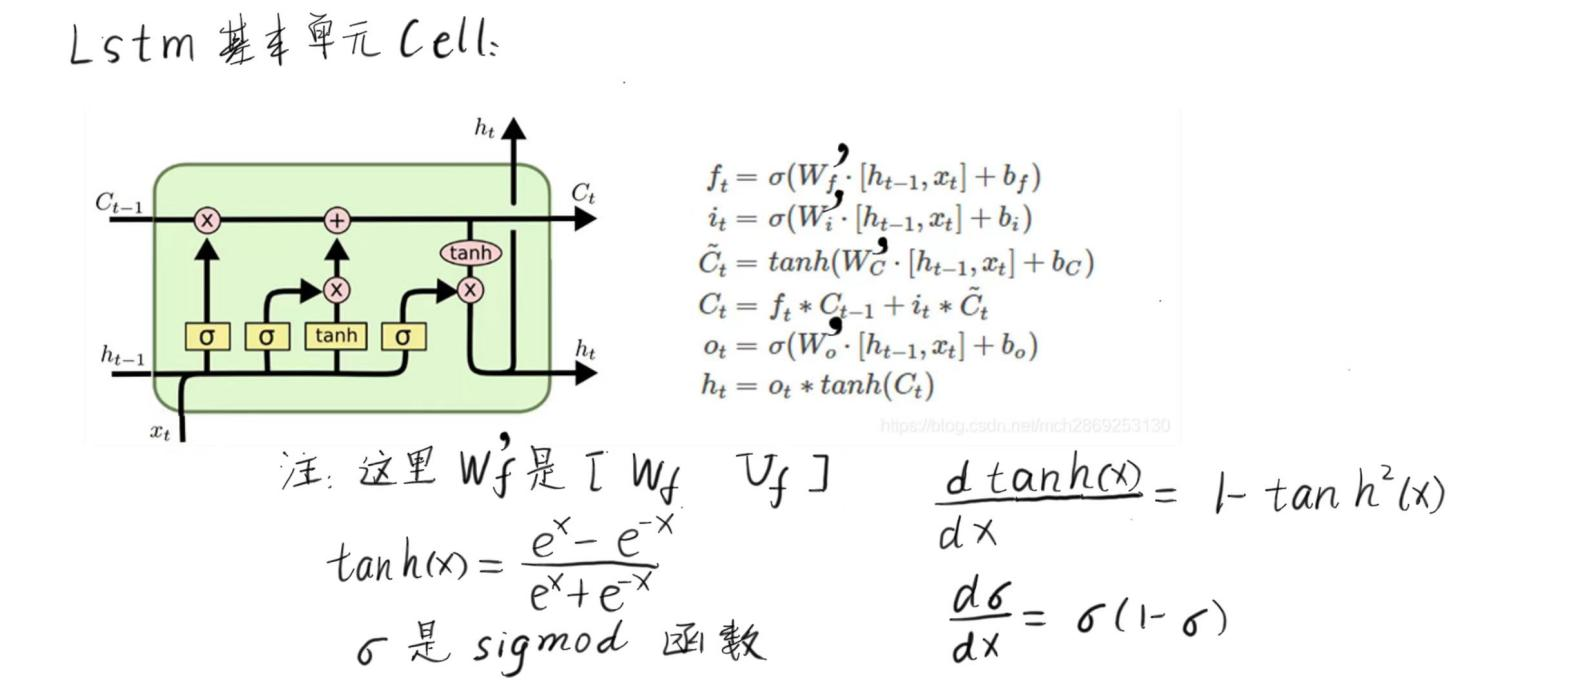 Lstm 基本单元 Cell:
h_t
C_{t-1}
C_t
× + tanh
× ×
σ σ tanh σ
h_{t-1}
h_t
x_t
f_t = σ(W'_f · [h_{t-1}, x_t] + b_f)
i_t = σ(W'_i · [h_{t-1}, x_t] + b_i)
C̃_t = tanh(W'_C · [h_{t-1}, x_t] + b_C)
C_t = f_t * C_{t-1} + i_t * C̃_t
o_t = σ(W'_o · [h_{t-1}, x_t] + b_o)
h_t = o_t * tanh(C_t)
https://blog.csdn.net/mch2869253130
注: 这里 W'_f 是 [ W_f U_f ]
tanh(x) = (e^x - e^{-x}) / (e^x + e^{-x})
σ 是 sigmod 函数
d tanh(x) / dx = 1 - tanh²(x)
dσ / dx = σ(1-σ)